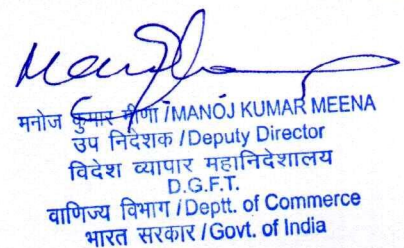 मनोज कुमार मीणा /MANOJ KUMAR MEENA
उप निदेशक /Deputy Director
विदेश व्यापार महानिदेशालय
D.G.F.T.
वाणिज्य विभाग /Deptt. of Commerce
भारत सरकार /Govt. of India